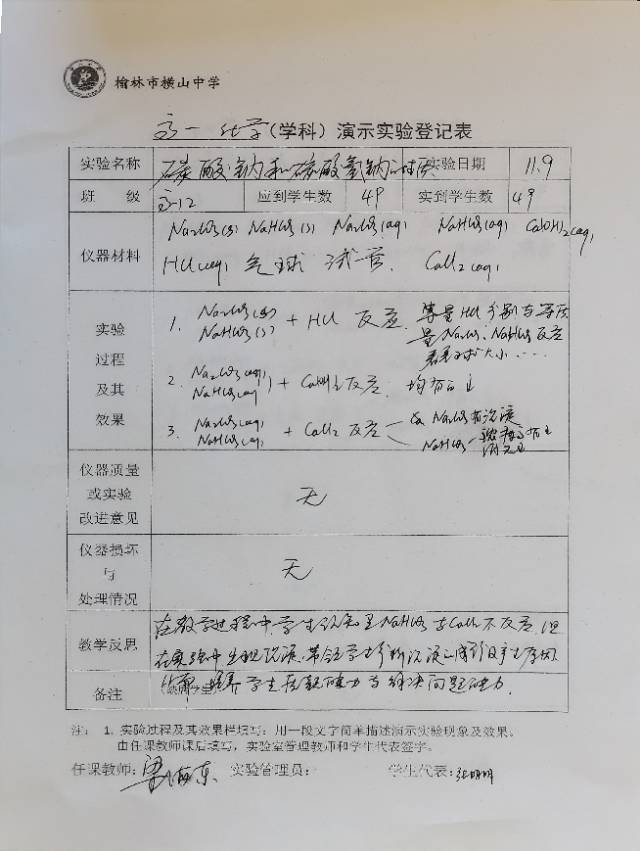 榆林市横山中学
高一 化学(学科)演示实验登记表
实验名称 碳酸钠和碳酸氢钠的性质 实验日期 11.9
班 级 高一12 应到学生数 49 实到学生数 49
Na₂CO₃(s) NaHCO₃(s) Na₂CO₃(aq) NaHCO₃(aq) Ca(OH)₂(aq)
仪器材料
HCl(aq) 气球 试管. CaCl₂(aq)
实验
过程
及其
效果
1. Na₂CO₃(s)
NaHCO₃(s) + HCl 反应. 等量HCl分别与等质
量Na₂CO₃、NaHCO₃反应
2. Na₂CO₃(aq)
NaHCO₃(aq) + Ca(OH)₂反应. 均有白↓
3. Na₂CO₃(aq)
NaHCO₃(aq) + CaCl₂ 反应 Na₂CO₃有沉淀
NaHCO₃
仪器质量
或实验
改进意见
无
仪器损坏
与
处理情况
无
教学反思
在教学过程中,学生认为是NaHCO₃与CaCl₂不反应,但
在实验中出现沉淀,带领学生分析沉淀的成分及产生原因
备注 培养学生质疑能力与解决问题能力.
注: 1. 实验过程及其效果栏填写:用一段文字简单描述演示实验现象及效果。
由任课教师课后填写,实验室管理教师和学生代表签字。
任课教师:梁海东 实验管理员: 学生代表:张明明